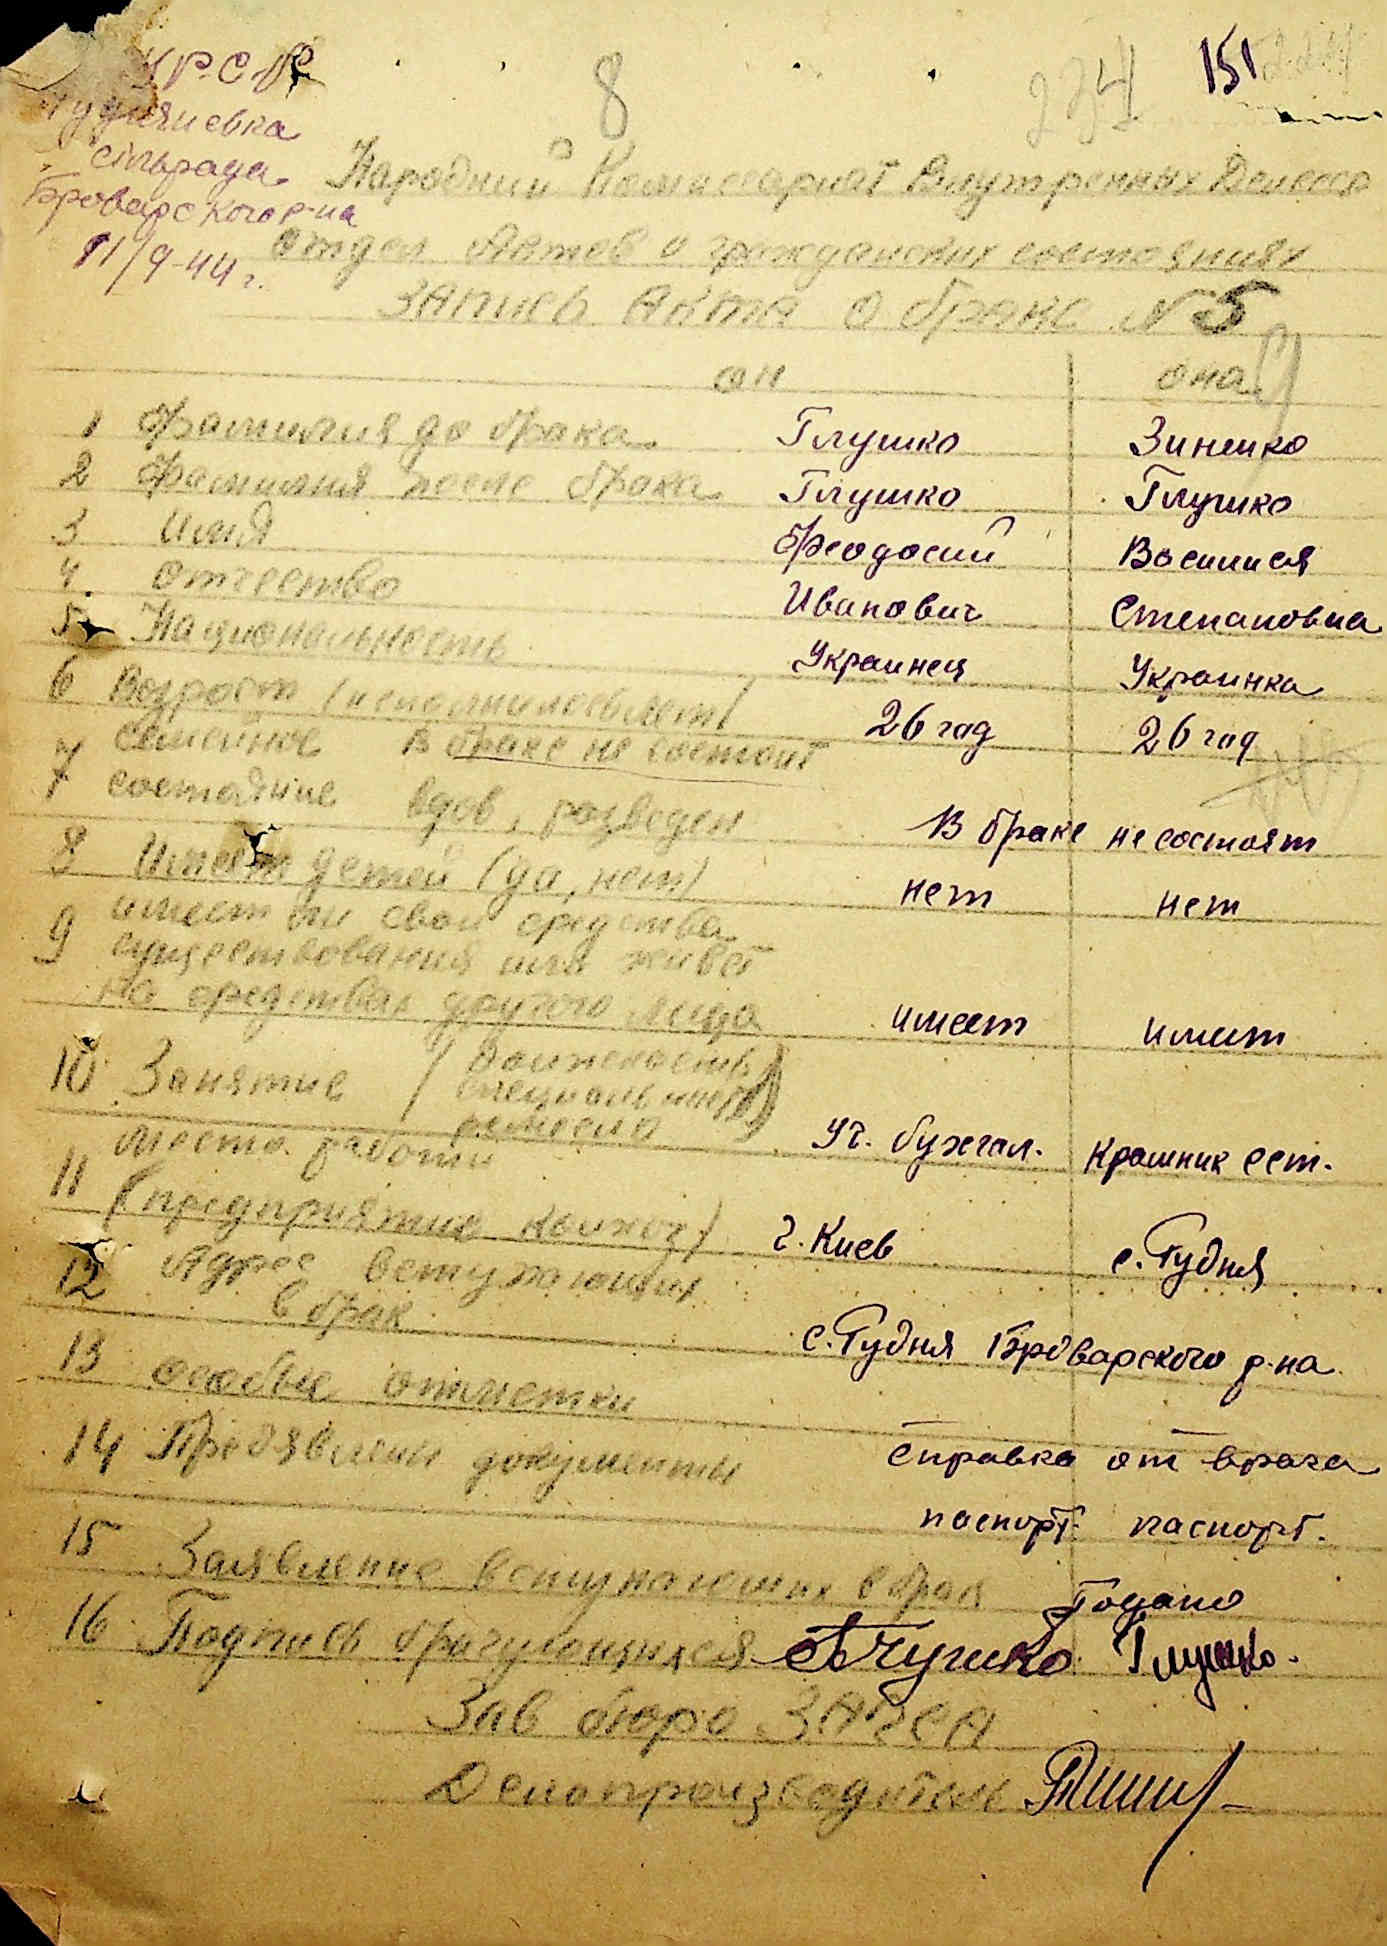 УРСР
сільрада
Броварского р-на
11/9-44 г.
8
234
151
Народний Комиссариат Внутренных Делссср
Отдел Актов о гражданских состояниях
Запись Акта о браке № 5
он она
1 Фамилия до брака Глушко Зиненко
2 Фамилия после брака Глушко Глушко
3 Имя Феодосий Василися
4. Отчество Иванович Степановна
5 Национальность Украинец Украинка
6 Возраст (исполнилось лет) 26 год 26 год
7 семейное В браке не состоит
состояние вдов, разведен В браке не состоят
8 Имеет детей (да, нет) нет нет
9 имеет ли свои средства
существования или живет
на средствах другого лица имеет имеет
10 Занятие (Должность
специальность)
ремесло Уч. бухгал. ест.
11 Место работи
(предприятие колхоз) г. Киев с. Рудня
12 Адрес вступающих
в брак с. Рудня Броварского р-на
13 особые отметки
14 Предявлени документы Справка от врача
паспорт. паспорт.
15 Заявление вступающих в брак Подано
16 Подпись брачующихся Глушко.
Зав бюро ЗАГСА
Делопроизводитель